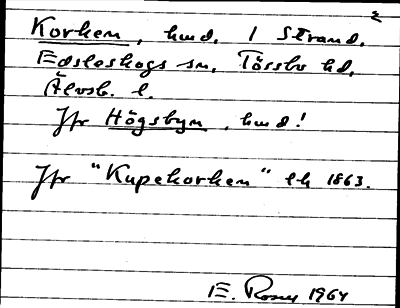 Korken, hmd. 1 Strand,
Edsleskogs sn, Tössbo hd,
Älvsb. l.
Jfr Högsbyn, hmd!
Jfr "Kupekorken" lk 1863.
E. Rosný 1964